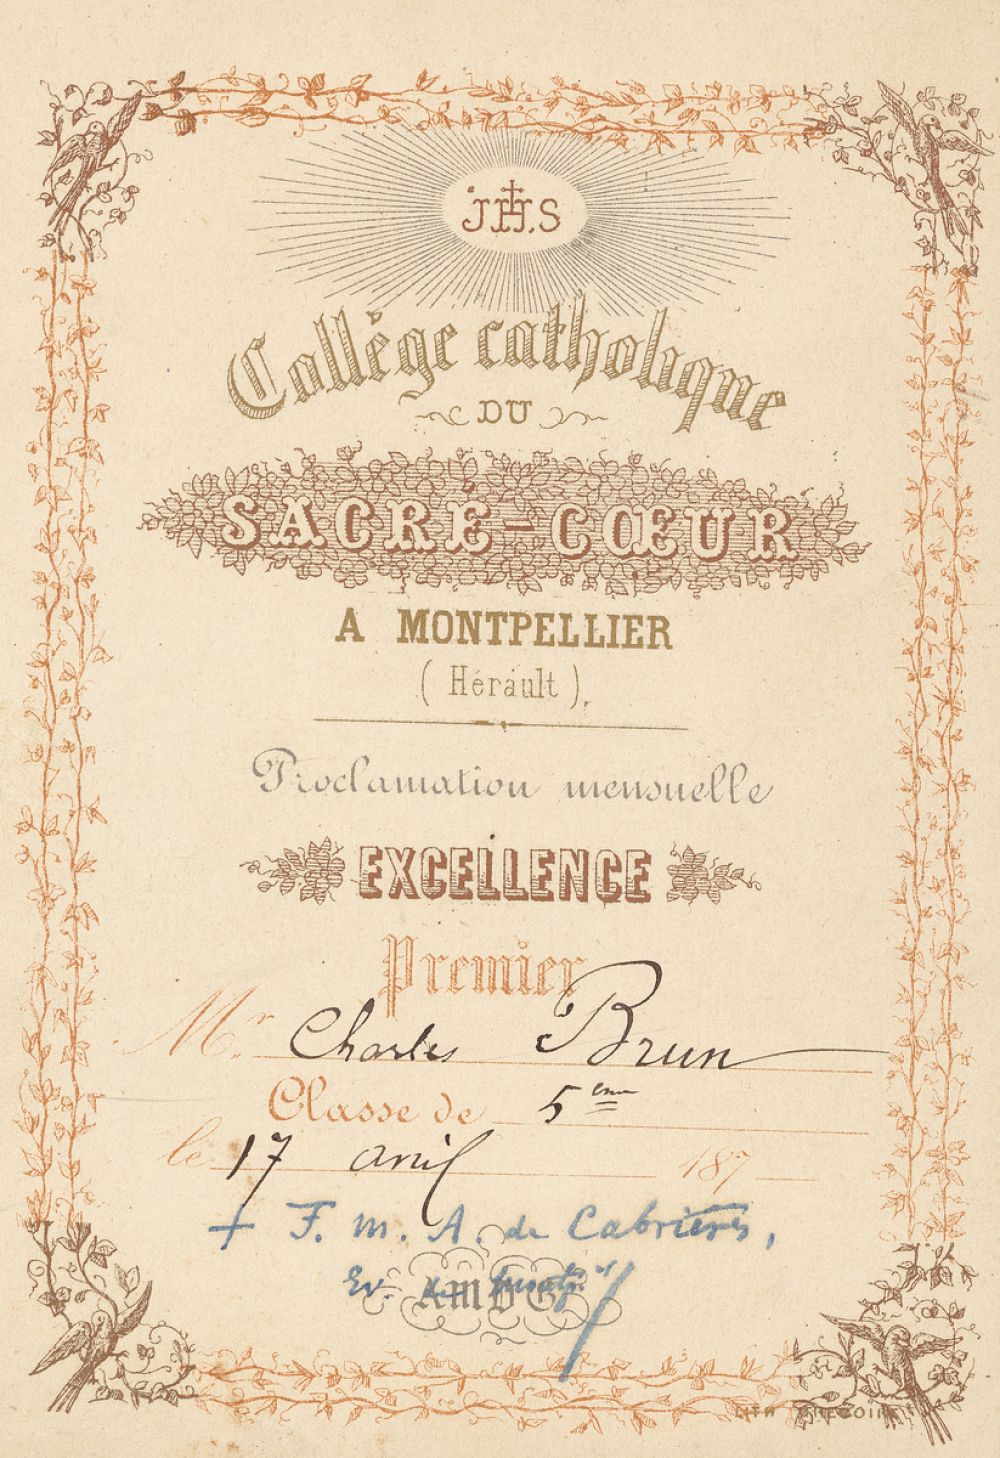 J.H.S
Collège catholique
DU
SACRÉ-CŒUR
A MONTPELLIER
(Hérault).
Proclamation mensuelle
EXCELLENCE
Premier
Mr. Charles Brun
Classe de 5eme
le 17 avril 187
+ F. M. A. de Cabrières,
Ev. de Montp.er
AMDG
LITH GREGOIRE